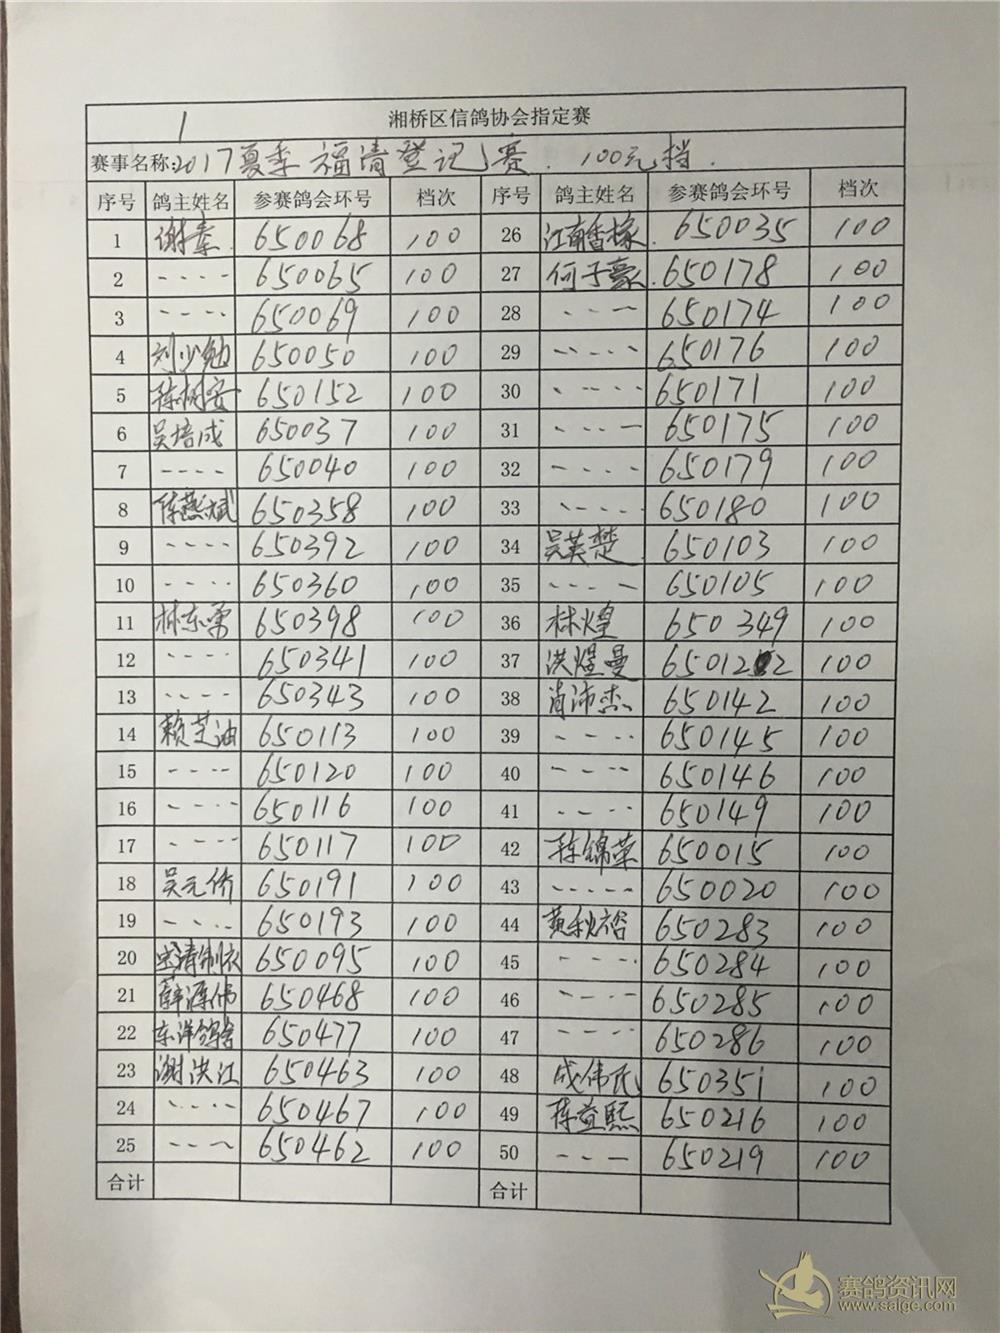 湘桥区信鸽协会指定赛
1
赛事名称:2017夏季 福清登记赛. 100元档.
序号 鸽主姓名 参赛鸽会环号 档次 序号 鸽主姓名 参赛鸽会环号 档次
1 谢素. 650068 100 26 江南香椽. 650035 100
2 ---- 650065 100 27 何子豪. 650178 100
3 ---- 650069 100 28 --- 650174 100
4 刘少勉 650050 100 29 ---- 650176 100
5 陈树安 650152 100 30 ---- 650171 100
6 吴培成 650037 100 31 ---- 650175 100
7 ---- 650040 100 32 ---- 650179 100
8 陈燕斌 650358 100 33 ---- 650180 100
9 ---- 650392 100 34 吴英楚. 650103 100
10 ---- 650360 100 35 --- 650105 100
11 林东勇 650398 100 36 林煌 650349 100
12 ---- 650341 100 37 洪煜曼 650122 100
13 ---- 650343 100 38 肖沛杰 650142 100
14 赖芝油 650113 100 39 ---- 650145 100
15 --- 650120 100 40 --- 650146 100
16 ---- 650116 100 41 ---- 650149 100
17 ---- 650117 100 42 陈锦荣 650015 100
18 吴元侨 650191 100 43 ----- 650020 100
19 ---- 650193 100 44 黄秋裕 650283 100
20 清制衣 650095 100 45 ---- 650284 100
21 薛源伟 650468 100 46 ---- 650285 100
22 东洋鸽舍 650477 100 47 ---- 650286 100
23 谢洪江 650463 100 48 成伟民 650351 100
24 ---- 650467 100 49 陈益熙 650216 100
25 --- 650462 100 50 --- 650219 100
合计 合计
赛鸽资讯网
www.saige.com